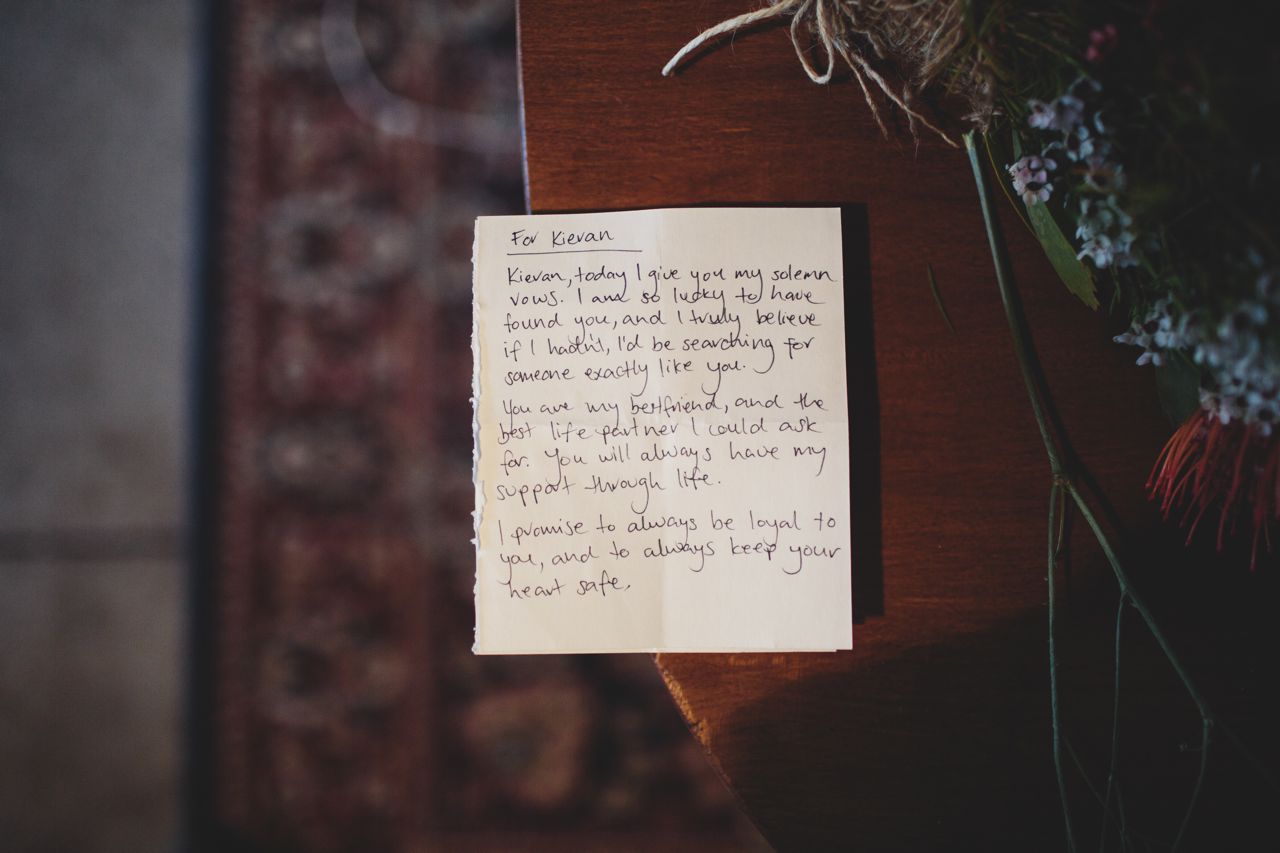 For Kievan
Kievan, today I give you my solemn
vows. I am so lucky to have
found you, and I truly believe
if I hadn't, I'd be searching for
someone exactly like you.
You are my bestfriend, and the
best life partner I could ask
for. You will always have my
support through life.
I promise to always be loyal to
you, and to always keep your
heart safe.